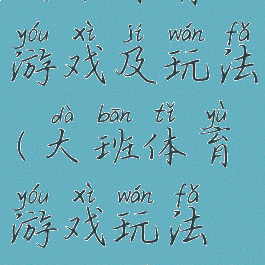 yóu xì jí wán fǎ
游戏及玩法
dà bān tǐ yù
(大班体育
yóu xì wán fǎ
游戏玩法